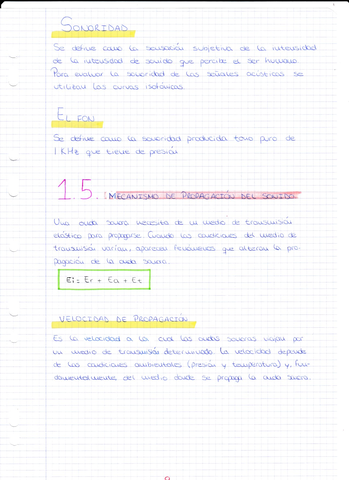 SONORIDAD
Se define como la sensación subjetiva de la intensidad
de la intensidad de sonido que percibe el ser humano
Para evaluar la sonoridad de las señales acústicas se
utilizan las curvas isofónicas.
EL FON
Se define como la sonoridad producida tono puro de
1 KHz que tiene de presión
1.5. MECANISMO DE PROPAGACIÓN DEL SONIDO
Una onda sonora necesita de un medio de transmisión
elástico para propagarse. Cuando las condiciones del medio de
transmisión varían, aparecen fenómenos que alteran la pro-
pagación de la onda sonora.
Ei = Er + Ea + Et
VELOCIDAD DE PROPAGACIÓN
Es la velocidad a la cual las ondas sonoras viajan por
un medio de transmisión determinado. La velocidad depende
de las condiciones ambientales (presión y temperatura) y, fun-
damentalmente del medio donde se propaga la onda sonora.